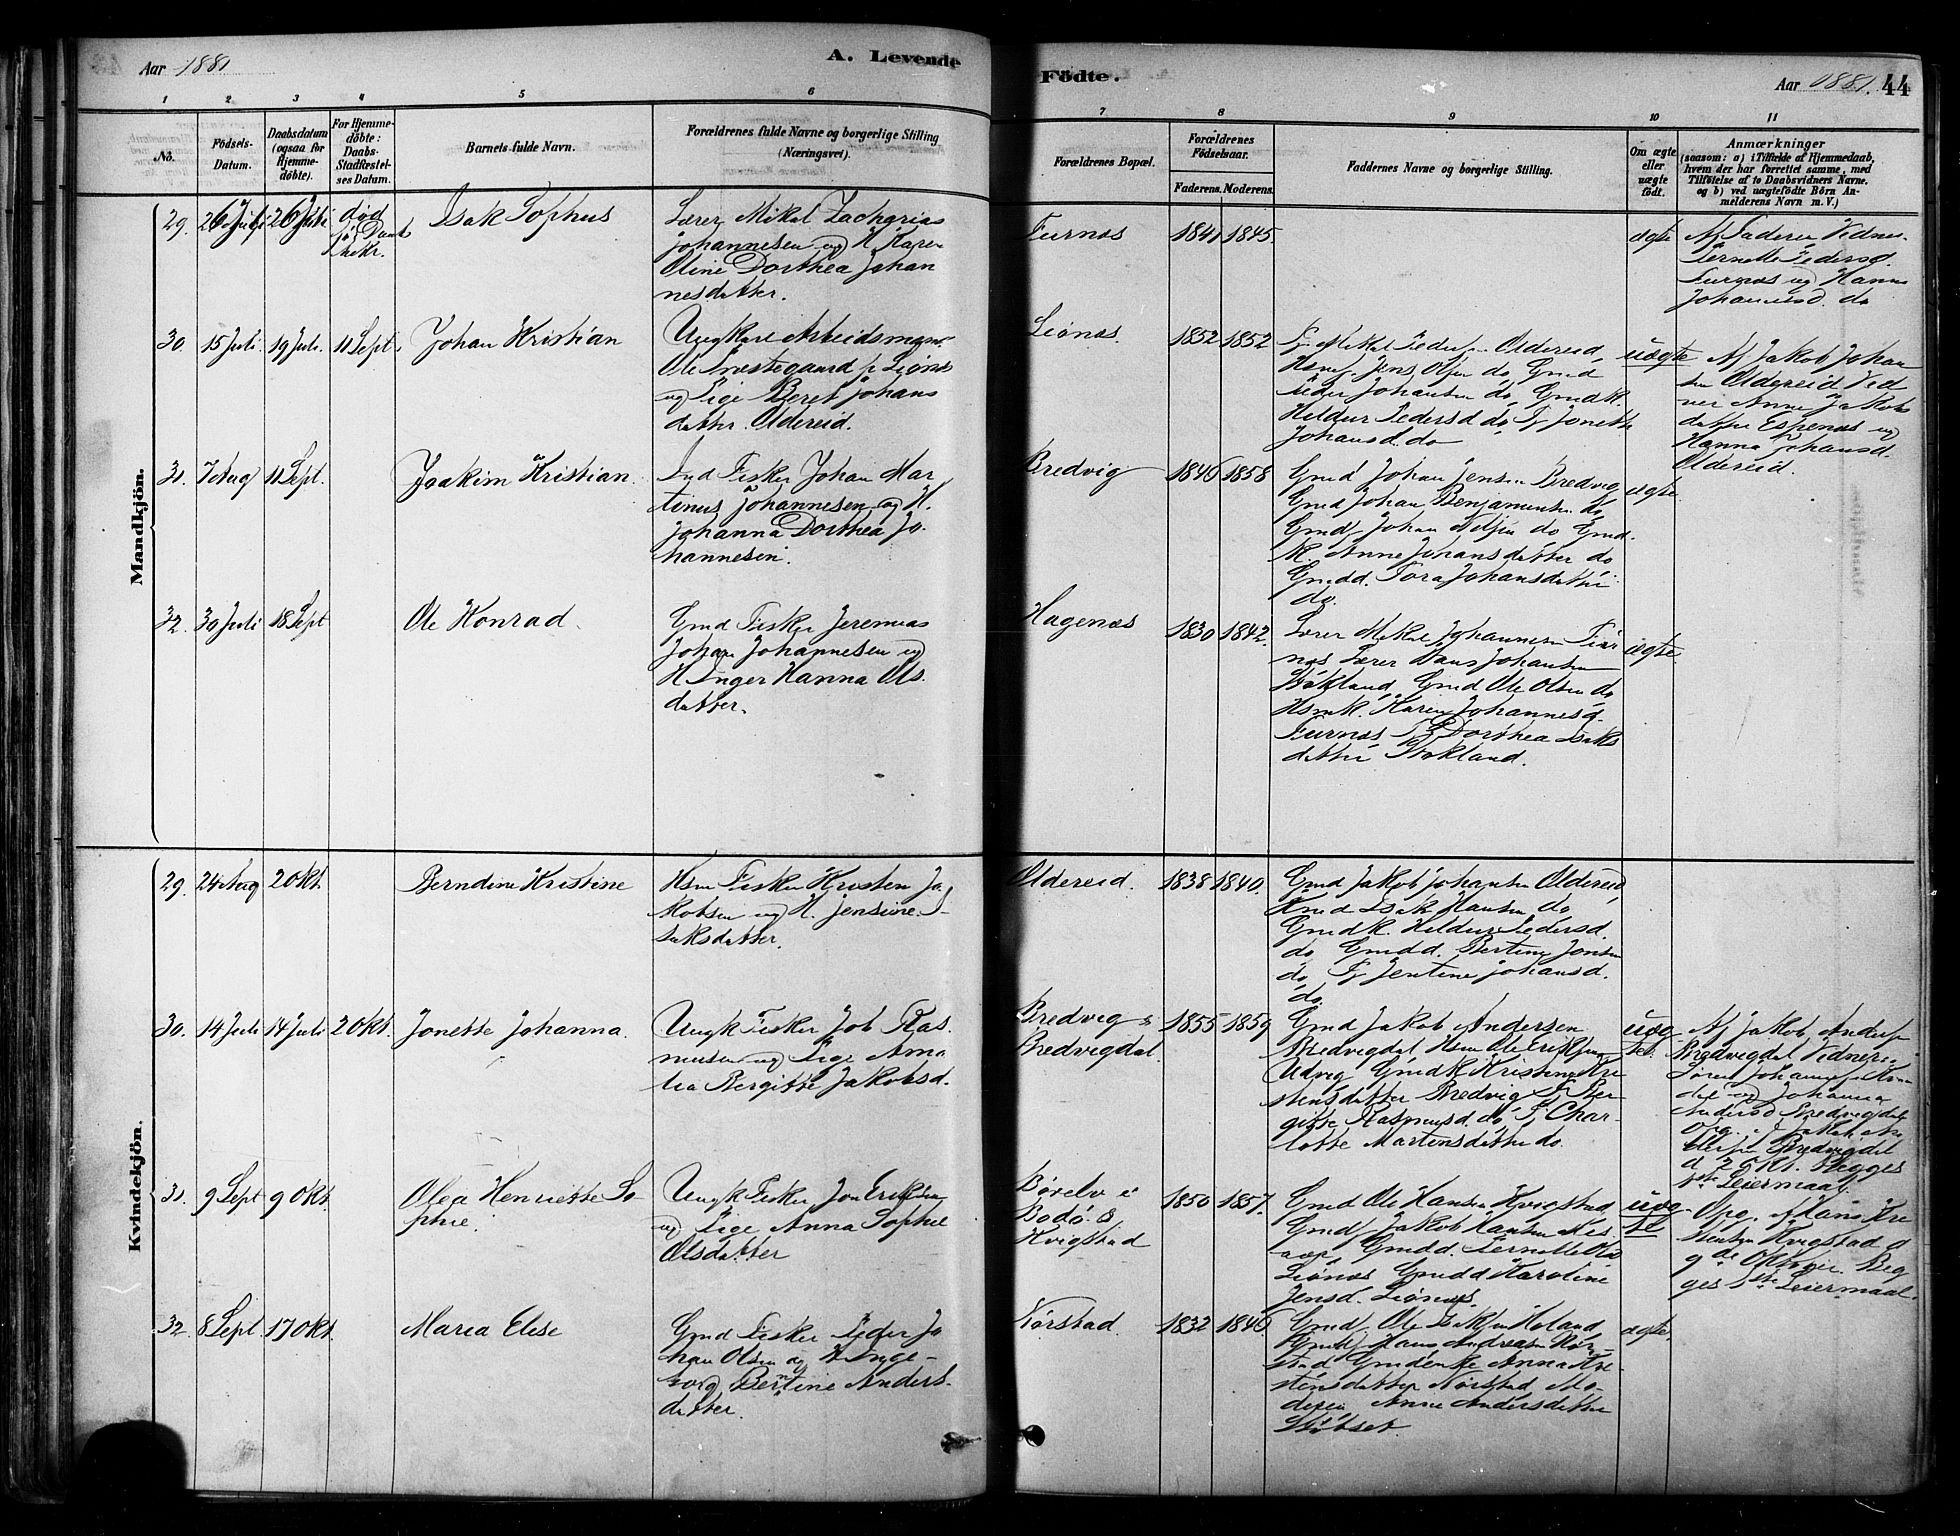 Aar 1881
A. Levende
Födte.
Aar 1881.
44
1 2 3 4 5 6 7 8 9 10 11
No.
Födsels-
Datum.
Daabsdatum
(ogsaa for
Hjemme-
døbte).
For Hjemme-
døbte:
Daabs-
Stadfæstel-
ses Datum.
Barnets fulde Navn.
Forældrenes fulde Navne og borgerlige Stilling
(Næringsvei).
Forældrenes Bopæl.
Forældrenes
Födselsaar.
Faderens. Moderens.
Faddernes Navne og borgerlige Stilling.
Om ægte
eller
uægte
født.
Anmærkninger
(saasom: a) i Tilfælde af Hjemmedaab,
hvem der har forrettet samme, med
Tilføielse af to Daabsvidners Navne.
og b) ved uægtefødte Børn An-
melderens Navn m. V.)
Mandkjön.
29. 26 Juli 26 Juli død
Isak Sophus
Lærer Mikal Zacharias
Johannesen og H. Karen
Oline Dorthea Johan
nesdatter.
Furnæs 1841 1845.
ægte
Af Faderen Vidner
Pernelle Pedersd.
Furnæs og Hanna
Johannesd. do
30. 15 Juli. 19 Juli. 11 Sept.
Johan Kristian
Ungkarl Arbeidsmand
Ole Præstegaard p Leiønæs
og Pige Beret Johans
datter. Oldereid.
Leiønæs. 1852 1852
Mikal Peder Oldereid,
Jens Olsen do, Gmd
Peder Johansen do, Gmdk.
Heldur Pedersd do, Pg Jonette
Johansd. do
uægte
Af Jakob Johan
sen Oldereid Vid
ner Anne Jakobs
datter Espenæs og
Hanna Johansd.
Oldereid.
31. 7 Aug 11 Sept.
Joakim Kristian
Ind Fisker Johan Mar
tinus Johannesen og H.
Johanna Dorthea Jo
hannesen.
Bredvig 1846 1858
Gmd Johan Jensen Bredvig
Gmd Johan Benjaminsen do
Gmd Johan do Gmd.
K. Anne Johansdatter do
Gmdd. Tora Johansdatter
do.
ægte.
32. 30 Juli 18 Sept
Ole Konrad.
Gmd Fisker Jeremias
Johan Johannesen og
H Inger Hanna Ols
datter.
Hagenæs 1830 1842.
Lærer Mikal Johannesen Fur
næs Lærer Hans Johansen
Stokland, Gmd Ole Olsen do
Hsmk. Karen Johannesd.
Furnæs Pg Dorthea Isaks
datter Stokland.
ægte.
Kvindekjön.
29. 24 Aug 2 Okt.
Berndine Kristine
Hsm Fisker Kristen Ja
kobsen og H. Jensine I-
saksdatter.
Oldereid. 1838 1840.
Gmd Jakob Johansen Oldereid,
Gmd Isak Hansen do
Gmdk. Heldur Pedersd.
do Gmdd. Bertine Jonsen
do, Pg Jentine Johansd.
do.
30. 14 Juli 14 Juli 2 Okt.
Jonette Johanna.
Ungk Fisker Job Ras
musen og Pige Ama
lia Bergitte Jakobsd.
Bredvig &
Bredvigdal. 1855 1859
Gmd Jakob Andersen
Bredvigdal Hsm Ole Eriksen
Udvig Gmdk Kristine Kri
stensdatter Bredvig Pg Ber
gitte Rasmusd. do, P, Char
lotte Martensdatter do.
uæg-
te.
Af Jakob Anders
Bredvigdal Vidner:
Søren Johannesen
og Johanna
Andersd Bredvigdal
Opg. af Jakob An
dersen Bredvigdal
d 2 Okt. Begges
1ste Leiermaal.
31. 9 Sept 9 Okt.
Olea Henriette So
phie.
Ungk Fisker Jon Eriksen
og Pige Anna Sophie
Olsdatter
Børelv i
Bodø &
Kvigstad 1850 1857.
Gmd Ole Hansen Kvigstad
Gmd Jakob Hansen
Gmdd. Pernelle Olsd
Leiønæs Gmdd Karoline
Jensd. Leiønæs.
uæg-
te
Opg. af Hans Kri
stensen Kvigstad d
9de Oktober. Beg
ges 1ste Leiermaal.
32. 8 Sept 17 Okt.
Maria Elise
Gmd Fisker Peder Jo
han Olsen og H Inge-
borg Bertine Anders
datter.
Nørstad. 1832 1846
Gmd, Ole Isaksen Høland
Gmd Hans Andreasen Nør-
stad Gmdenke Anna Kri-
stensdatter Nørstad Mo-
deren Anne Andersdatter
ægte.